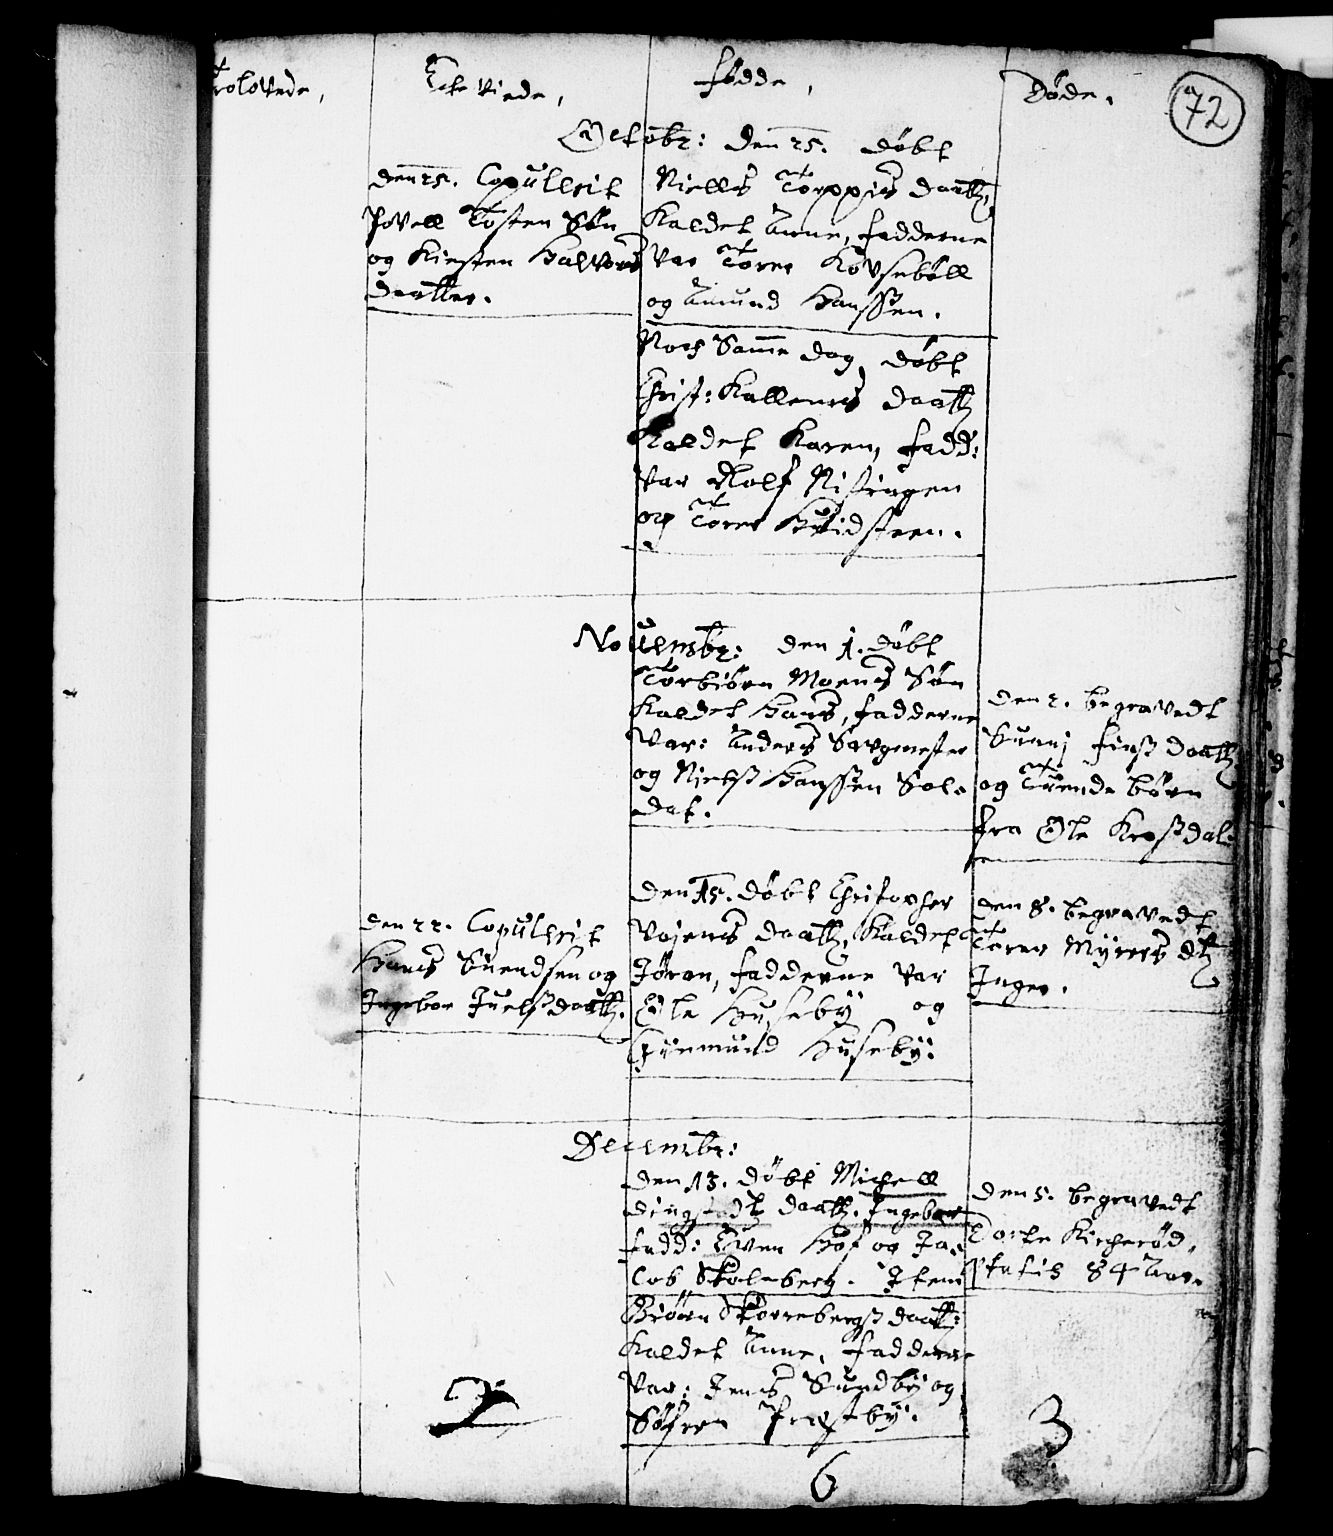 Trolovede,
Ecte Viede,
fødde,
Døde.
72
Octobr: den 25. døbt
Niellss Torppiss daatt:
Kaldet Anne, fadderne
Var Torer Kovsebøll
og Amund Hanssen.
den 25. Copullerit
Povell Tosten Søn
og Kirsten Halvors
daatter.
Noch Samme dag, døbt
Christ: Kalleruss daatt:
Kaldet Karen, fadd:
Var Rolf Nistingen
og Torer Hvidsteen.
Novembr: den 1. døbt
Torbiørn Moenss Søn
Kaldet Hans, fadderne
Var: Anders Savgmester
og Nielss Hanssen Sol-
dat.
den 2. begravedt
Sunni finss daatt:
og Trende børn
fra Ole Krossdal-
en
den 15. døbt Christopher
Vøjenss daatt. Kaldet
Jøran, fadderne Var
Ole Huseby og
Gunmund Huseby.
den 22. Copullerit
Hans Suendsen og
Ingebor Juelss daatt.
den 8. begravedt
Torer Myrers dtt
Inger.
Decembr:
den 13. døbt Michell
dingstadtz daatt. Ingebor
fadd: Even Hof og Ja-
cob Skoleberg. Item
Biørn Skorrebergss daatt:
Kaldet Anne, fadderne
Var: Jens Sundby og
Søfren Præstby.
den 5. begravedt
Dorte Kircherød,
ætatis 84 Aar.
2
6
3